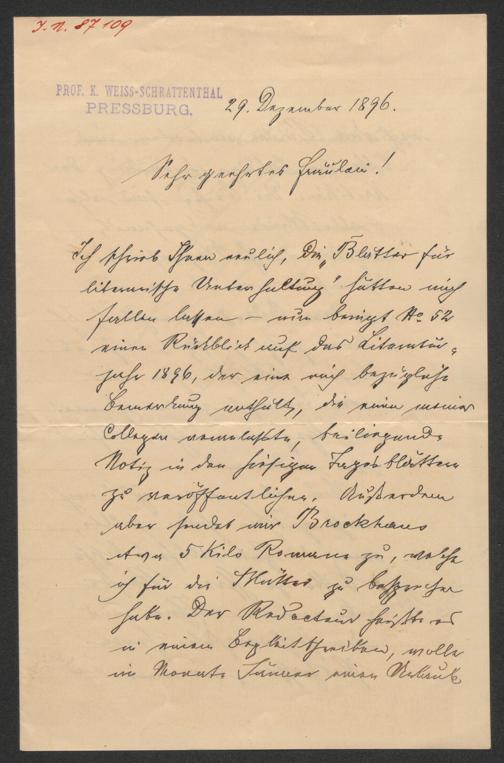 J. N. 87109
PROF. K. WEISS-SCHRATTENTHAL
PRESSBURG.
29. Dezember 1896.
Sehr geehrtes Fräulein!
Ich schrieb Ihnen neulich, die „Blätter für
literarische Unterhaltung" hätten mich
fallen lassen – nun bringt No 52
einen Rückblick auf das Literatur-
jahr 1896, der eine mich bezügliche
Bemerkung enthält, die einen meiner
Collegen veranlaßte, beiliegende
Notiz in den hiesigen Tagesblättern
zu veröffentlichen. Außerdem
aber sendet mir Brockhaus
etwa 5 Kilo Romane zu, welche
ich für die Blätter zu besprechen
habe. Der Redacteur heißt es
in einem Begleitschreiben, wolle
im Monate Jänner einen Urlaub